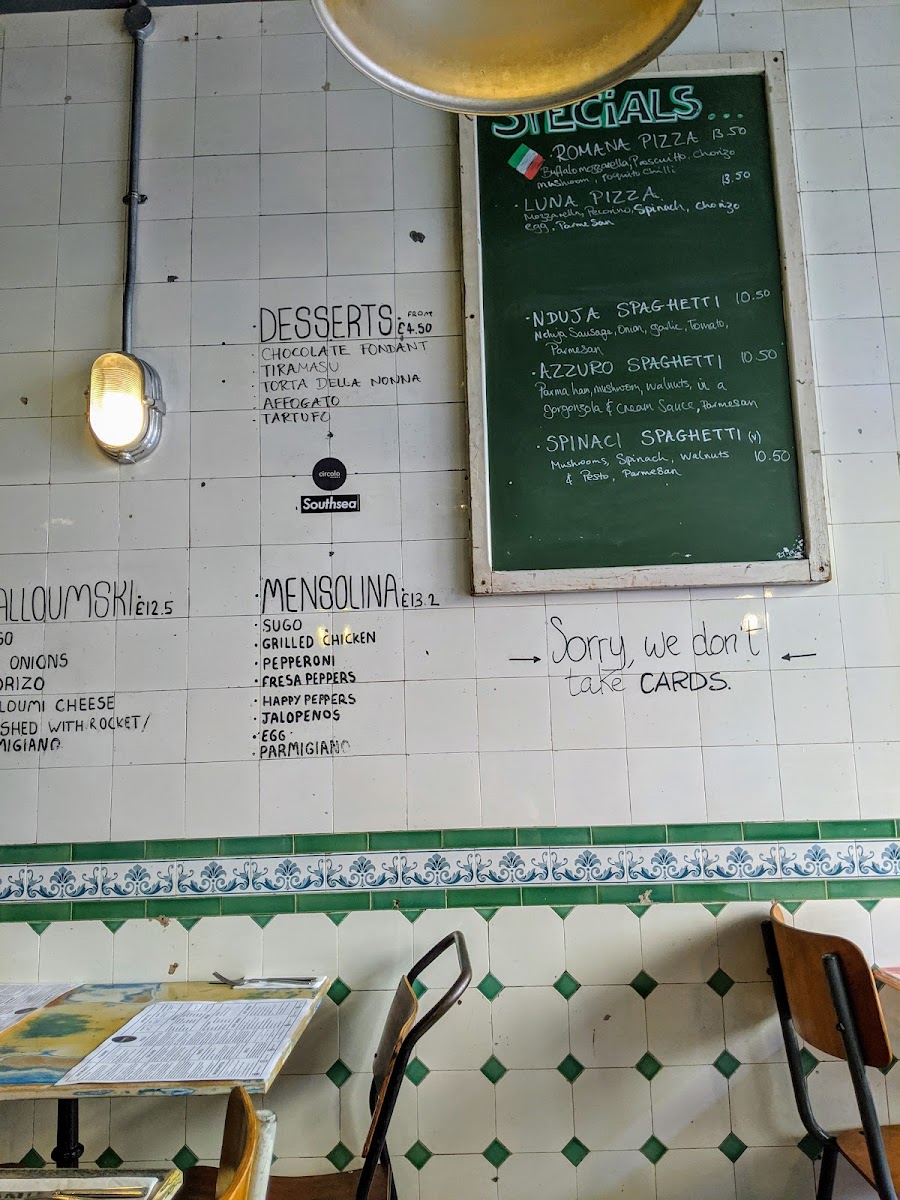 SPECIALS...
· ROMANA PIZZA 13.50
Buffalo mozzarella, Prescuitto, Chorizo
mushroom, roquito chilli
· LUNA PIZZA 13.50
Mozzarella, Pecorino, Spinach, chorizo
egg, Parmesan
· NDUJA SPAGHETTI 10.50
Nduja Sausage, Onion, garlic, Tomato,
Parmesan
· AZZURO SPAGHETTI 10.50
Parma ham, mushroom, walnuts, in a
gorgonzola & Cream Sauce, Parmesan
· SPINACI SPAGHETTI (v)
Mushrooms, Spinach, walnuts 10.50
& Pesto, Parmesan
· DESSERTS: FROM £4.50
· CHOCOLATE FONDANT
· TIRAMASU
· TORTA DELLA NONNA
· AFFOGATO
· TARTUFO
circolo
Southsea
ALLOUMSKI: £12.5
GO
ONIONS
ORIZO
LOUMI CHEESE
SHED WITH ROCKET/
MIGIANO
· MENSOLINA: £13.2
· SUGO
· GRILLED CHICKEN
· PEPPERONI
· FRESA PEPPERS
· HAPPY PEPPERS
· JALOPENOS
· EGG ·
· PARMIGIANO
→ Sorry, we don't ←
take CARDS.